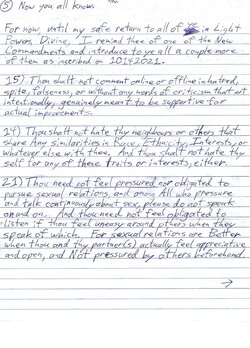 ⑤ Now you all know.
For now, until my safe return to all of in Light
Powers Divine, I remind thee of one of the New
Commandments and introduce to ye all a couple more
of them as inscribed on 10142021.
15) Thou shall not comment online or offline in hatred,
spite, falseness, or without any words of criticism that are
intentionally, genuinely meant to be supportive for
actual improvements.
14) Thou shall not hate thy neighbours or others that
share any similarities in Race, Ethnicity, Interests, or
whatever else with thee. And thou shall not hate thy
self for any of these traits or interests, either.
21) Thou need not feel pressured nor obligated to
pursue sexual relations, and among All who pressure
and talk continuously about sex, please do not speak
on and on. And thou need not feel obligated to
listen if thou feel uneasy around others when they
speak of which. For sexual relations are Better
when thou and thy partner(s) actually feel appreciative
and open, and Not pressured by others beforehand.
→